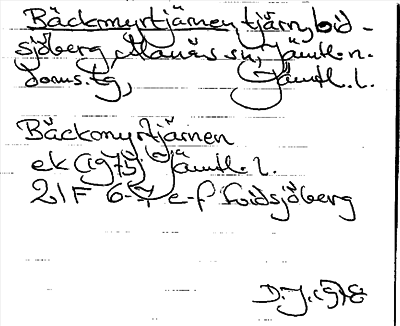 Bäckmyrtjärnen, tjärn, bid-
sjöberg, Alanäs sn, Jämtl. n.
doms. tg, Jämtl. l.
Bäckmyrtjärnen
ek (1975) Jämtl. l.
21F 6-7 e-f Svidsjöberg
D.J. 1978